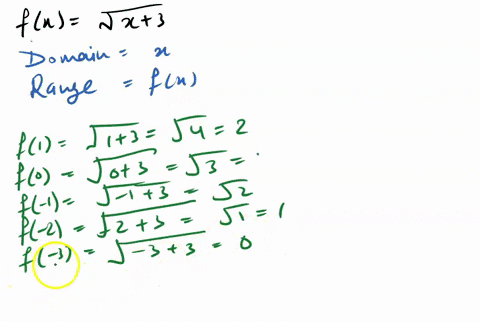 f(x) = √x+3
Domain = x
Range = f(x)
f(1) = √1+3 = √4 = 2
f(0) = √0+3 = √3 = .
f(-1) = √-1+3 = √2
f(-2) = √2+3 = √1 = 1
f(-3) = √-3+3 = 0